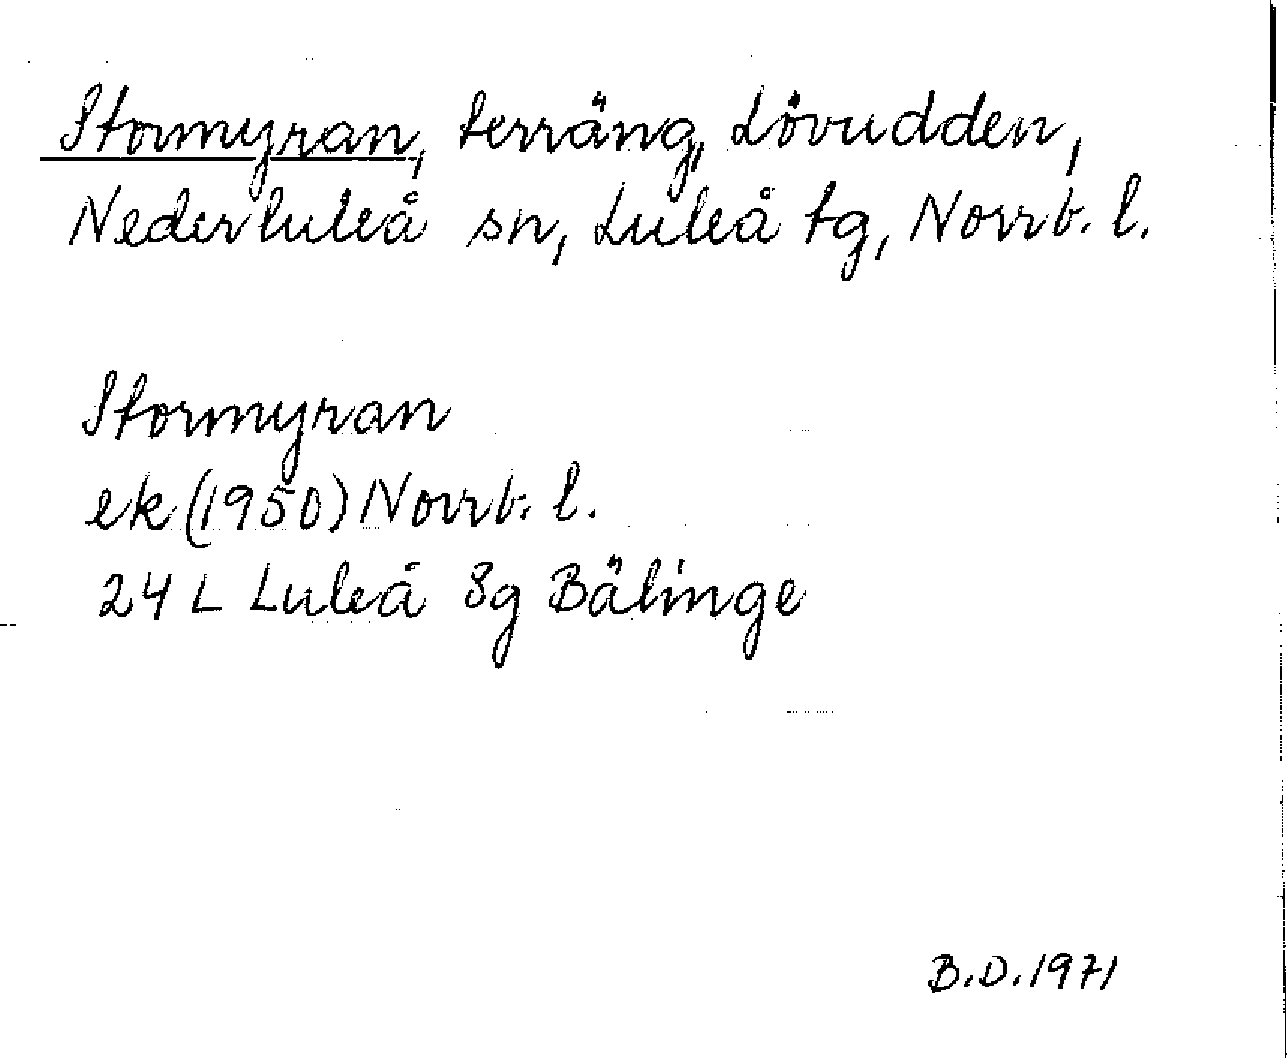 Stormyran, terräng, Lövudden,
Nederluleå sn, Luleå tg, Norrb. l.
Stormyran
ek (1950) Norrb. l.
24 L Luleå 8g Bälinge
B.D. 1971